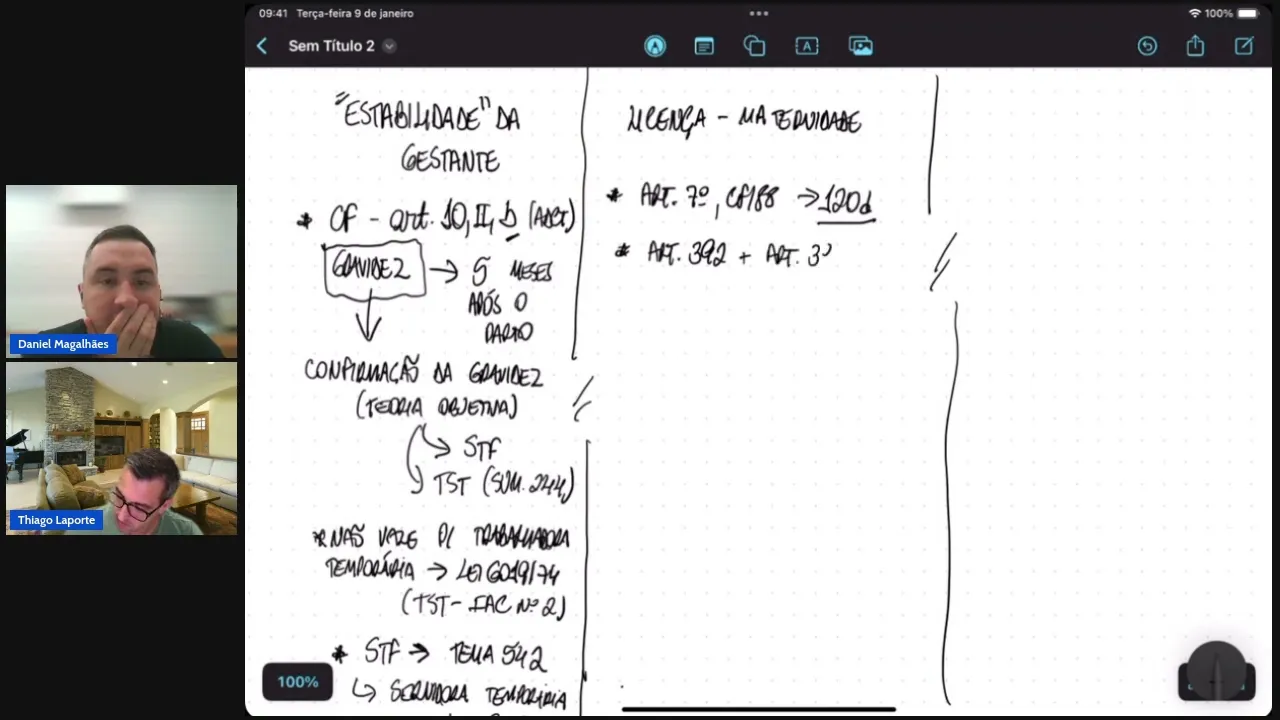 09:41 Terça-feira 9 de janeiro
100%
Sem Título 2
"ESTABILIDADE" DA
GESTANTE
* CF - art. 10, II, b (ADCT)
GRAVIDEZ → 5 MESES
APÓS O
PARTO
CONFIRMAÇÃO DA GRAVIDEZ
(TEORIA OBJETIVA)
→ STF
→ TST (SÚM. 244)
* NÃO VALE P/ TRABALHADORA
TEMPORÁRIA → LEI 6019/74
(TST - IAC Nº 2)
* STF → TEMA 542
↳ SERVIDORA TEMPORÁRIA
100%
LICENÇA - MATERNIDADE
* ART. 7º, CF/88 → 120d
* ART. 392 + ART. 3
Daniel Magalhães
Thiago Laporte